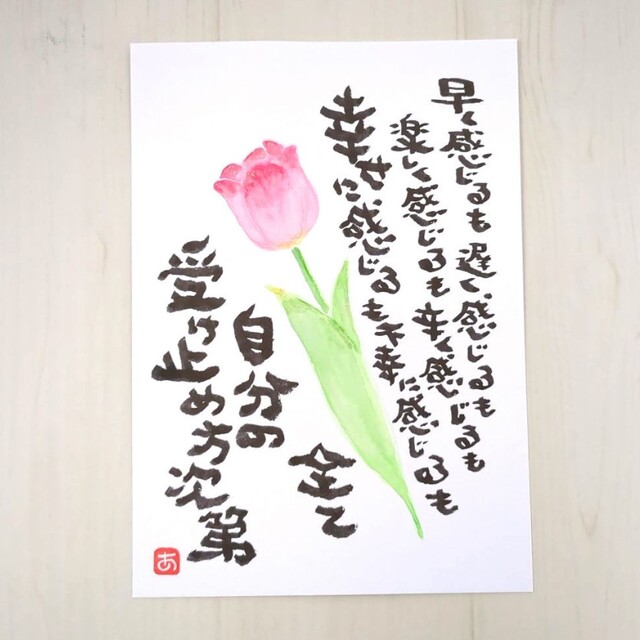 早く感じるも遅く感じるも
楽しく感じるも辛く感じるも
幸せに感じるも不幸に感じるも
全て
自分の
受け止め方次第
あ